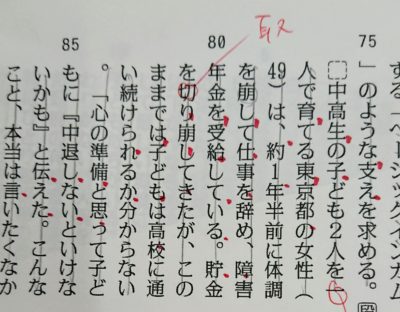 する「ベーシックインカム
75
」のような支えを求める。段
中高生の子ども2人を一
人で育てる東京都の女性(
49)は、約1年半前に体調
を崩して仕事を辞め、障害
80
年金を受給している。貯金
取
を切り崩してきたが、この
ままでは子どもは高校に通
い続けられるか分からない
。「心の準備と思って子ど
85
もに『中退しないといけな
いかも』と伝えた。こんな
こと、本当は言いたくなか